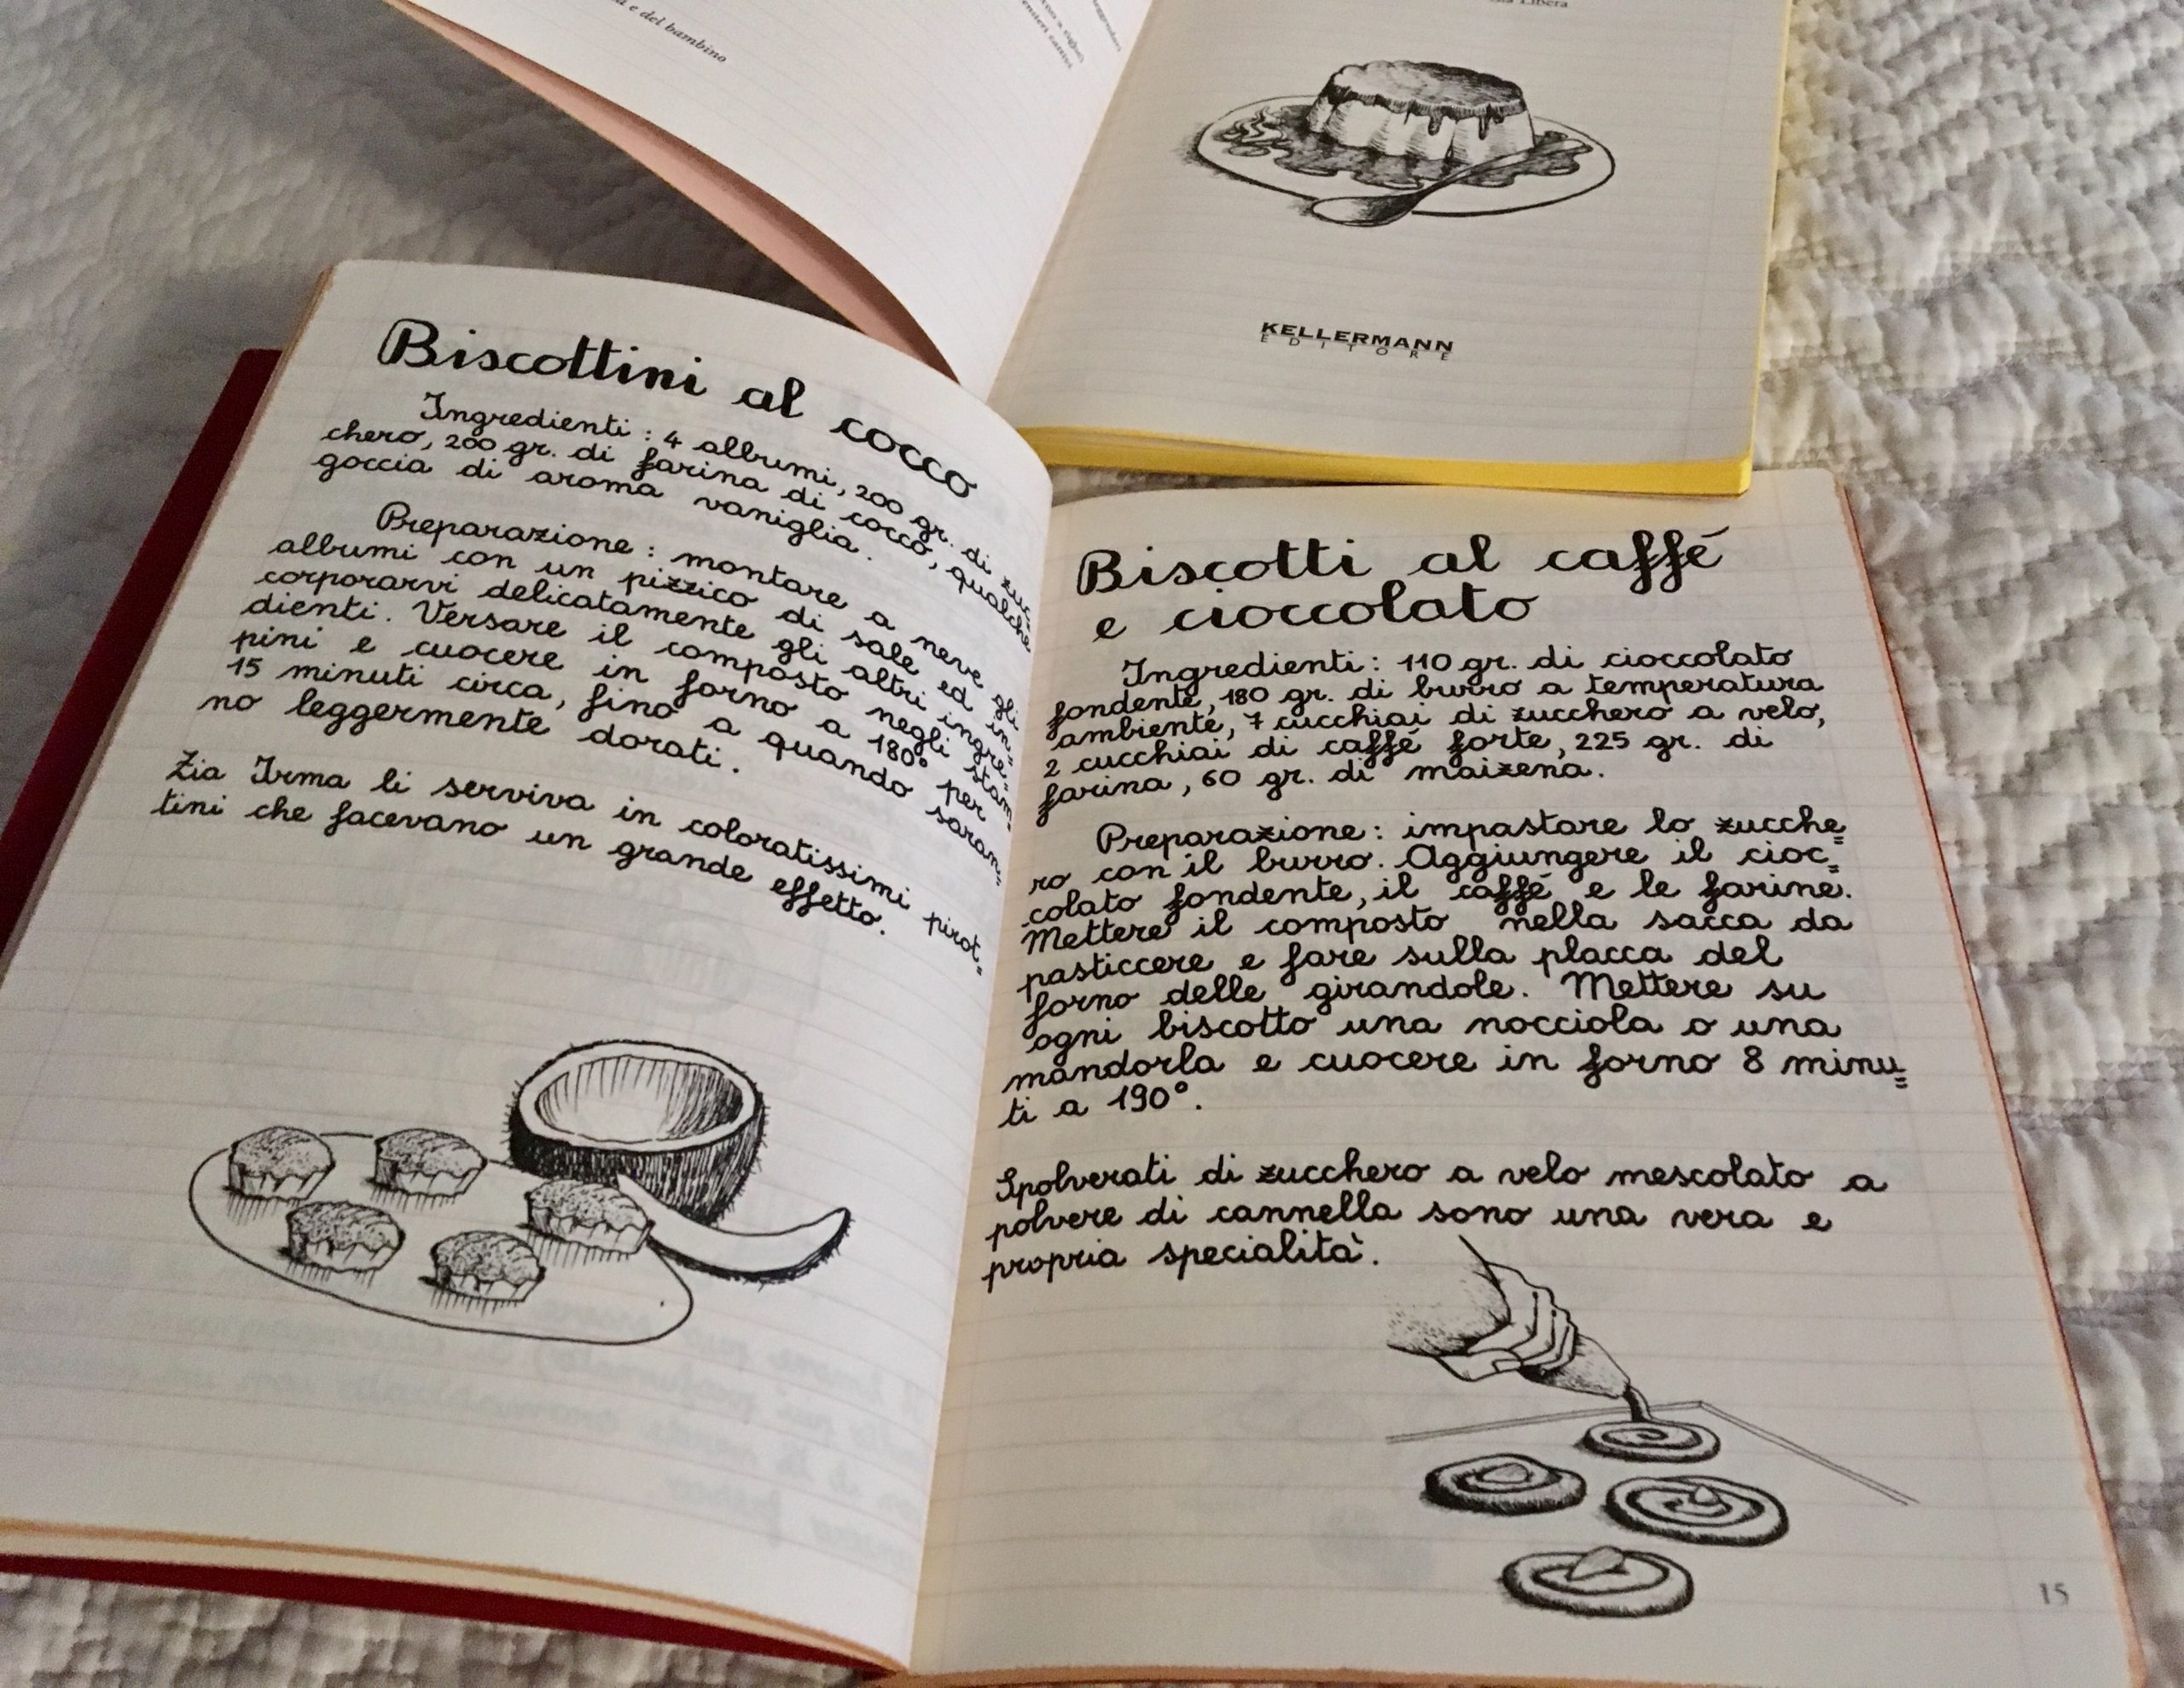 e del bambino
Libera
KELLERMANN
EDITORE
Biscottini al cocco
Ingredienti : 4 albumi, 200 gr. di zuc=
chero, 200 gr. di farina di cocco, qualche
goccia di aroma vaniglia.
Preparazione : montare a neve gli
albumi con un pizzico di sale ed in=
corporarvi delicatamente gli altri ingre=
dienti. Versare il composto negli stam=
pini e cuocere in forno a 180° per
15 minuti circa, fino a quando saran=
no leggermente dorati.
Zia Irma li serviva in coloratissimi pirot=
tini che facevano un grande effetto.
Biscotti al caffé
e cioccolato
Ingredienti: 110 gr. di cioccolato
fondente, 180 gr. di burro a temperatura
ambiente, 7 cucchiai di zucchero a velo,
2 cucchiai di caffé forte, 225 gr. di
farina, 60 gr. di maizena.
Preparazione: impastare lo zucche=
ro con il burro. Aggiungere il cioc=
colato fondente, il caffé e le farine.
Mettere il composto nella sacca da
pasticcere e fare sulla placca del
forno delle girandole. Mettere su
ogni biscotto una nocciola o una
mandorla e cuocere in forno 8 minu=
ti a 190°.
Spolverati di zucchero a velo mescolato a
polvere di cannella sono una vera e
propria specialità.
15